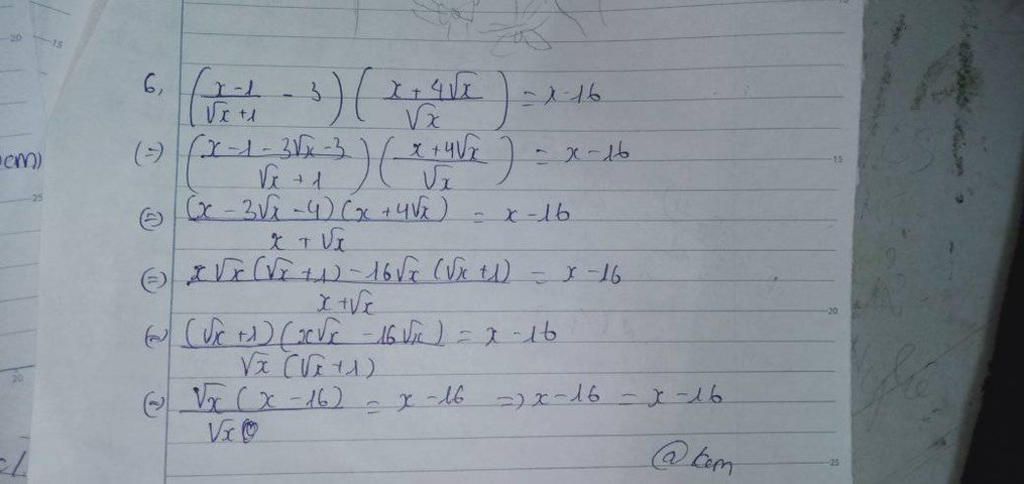 6, ((x-1)/(√x+1) - 3) ((x+4√x)/√x) = x-16
(=) ((x-1-3√x-3)/(√x+1)) ((x+4√x)/√x) = x-16
(=) ((x-3√x-4)(x+4√x))/(x+√x) = x-16
(=) (x√x(√x+1)-16√x(√x+1))/(x+√x) = x-16
(=) ((√x+1)(x√x-16√x))/(√x(√x+1)) = x-16
(=) (√x(x-16))/√x = x-16 => x-16 = x-16
@kem